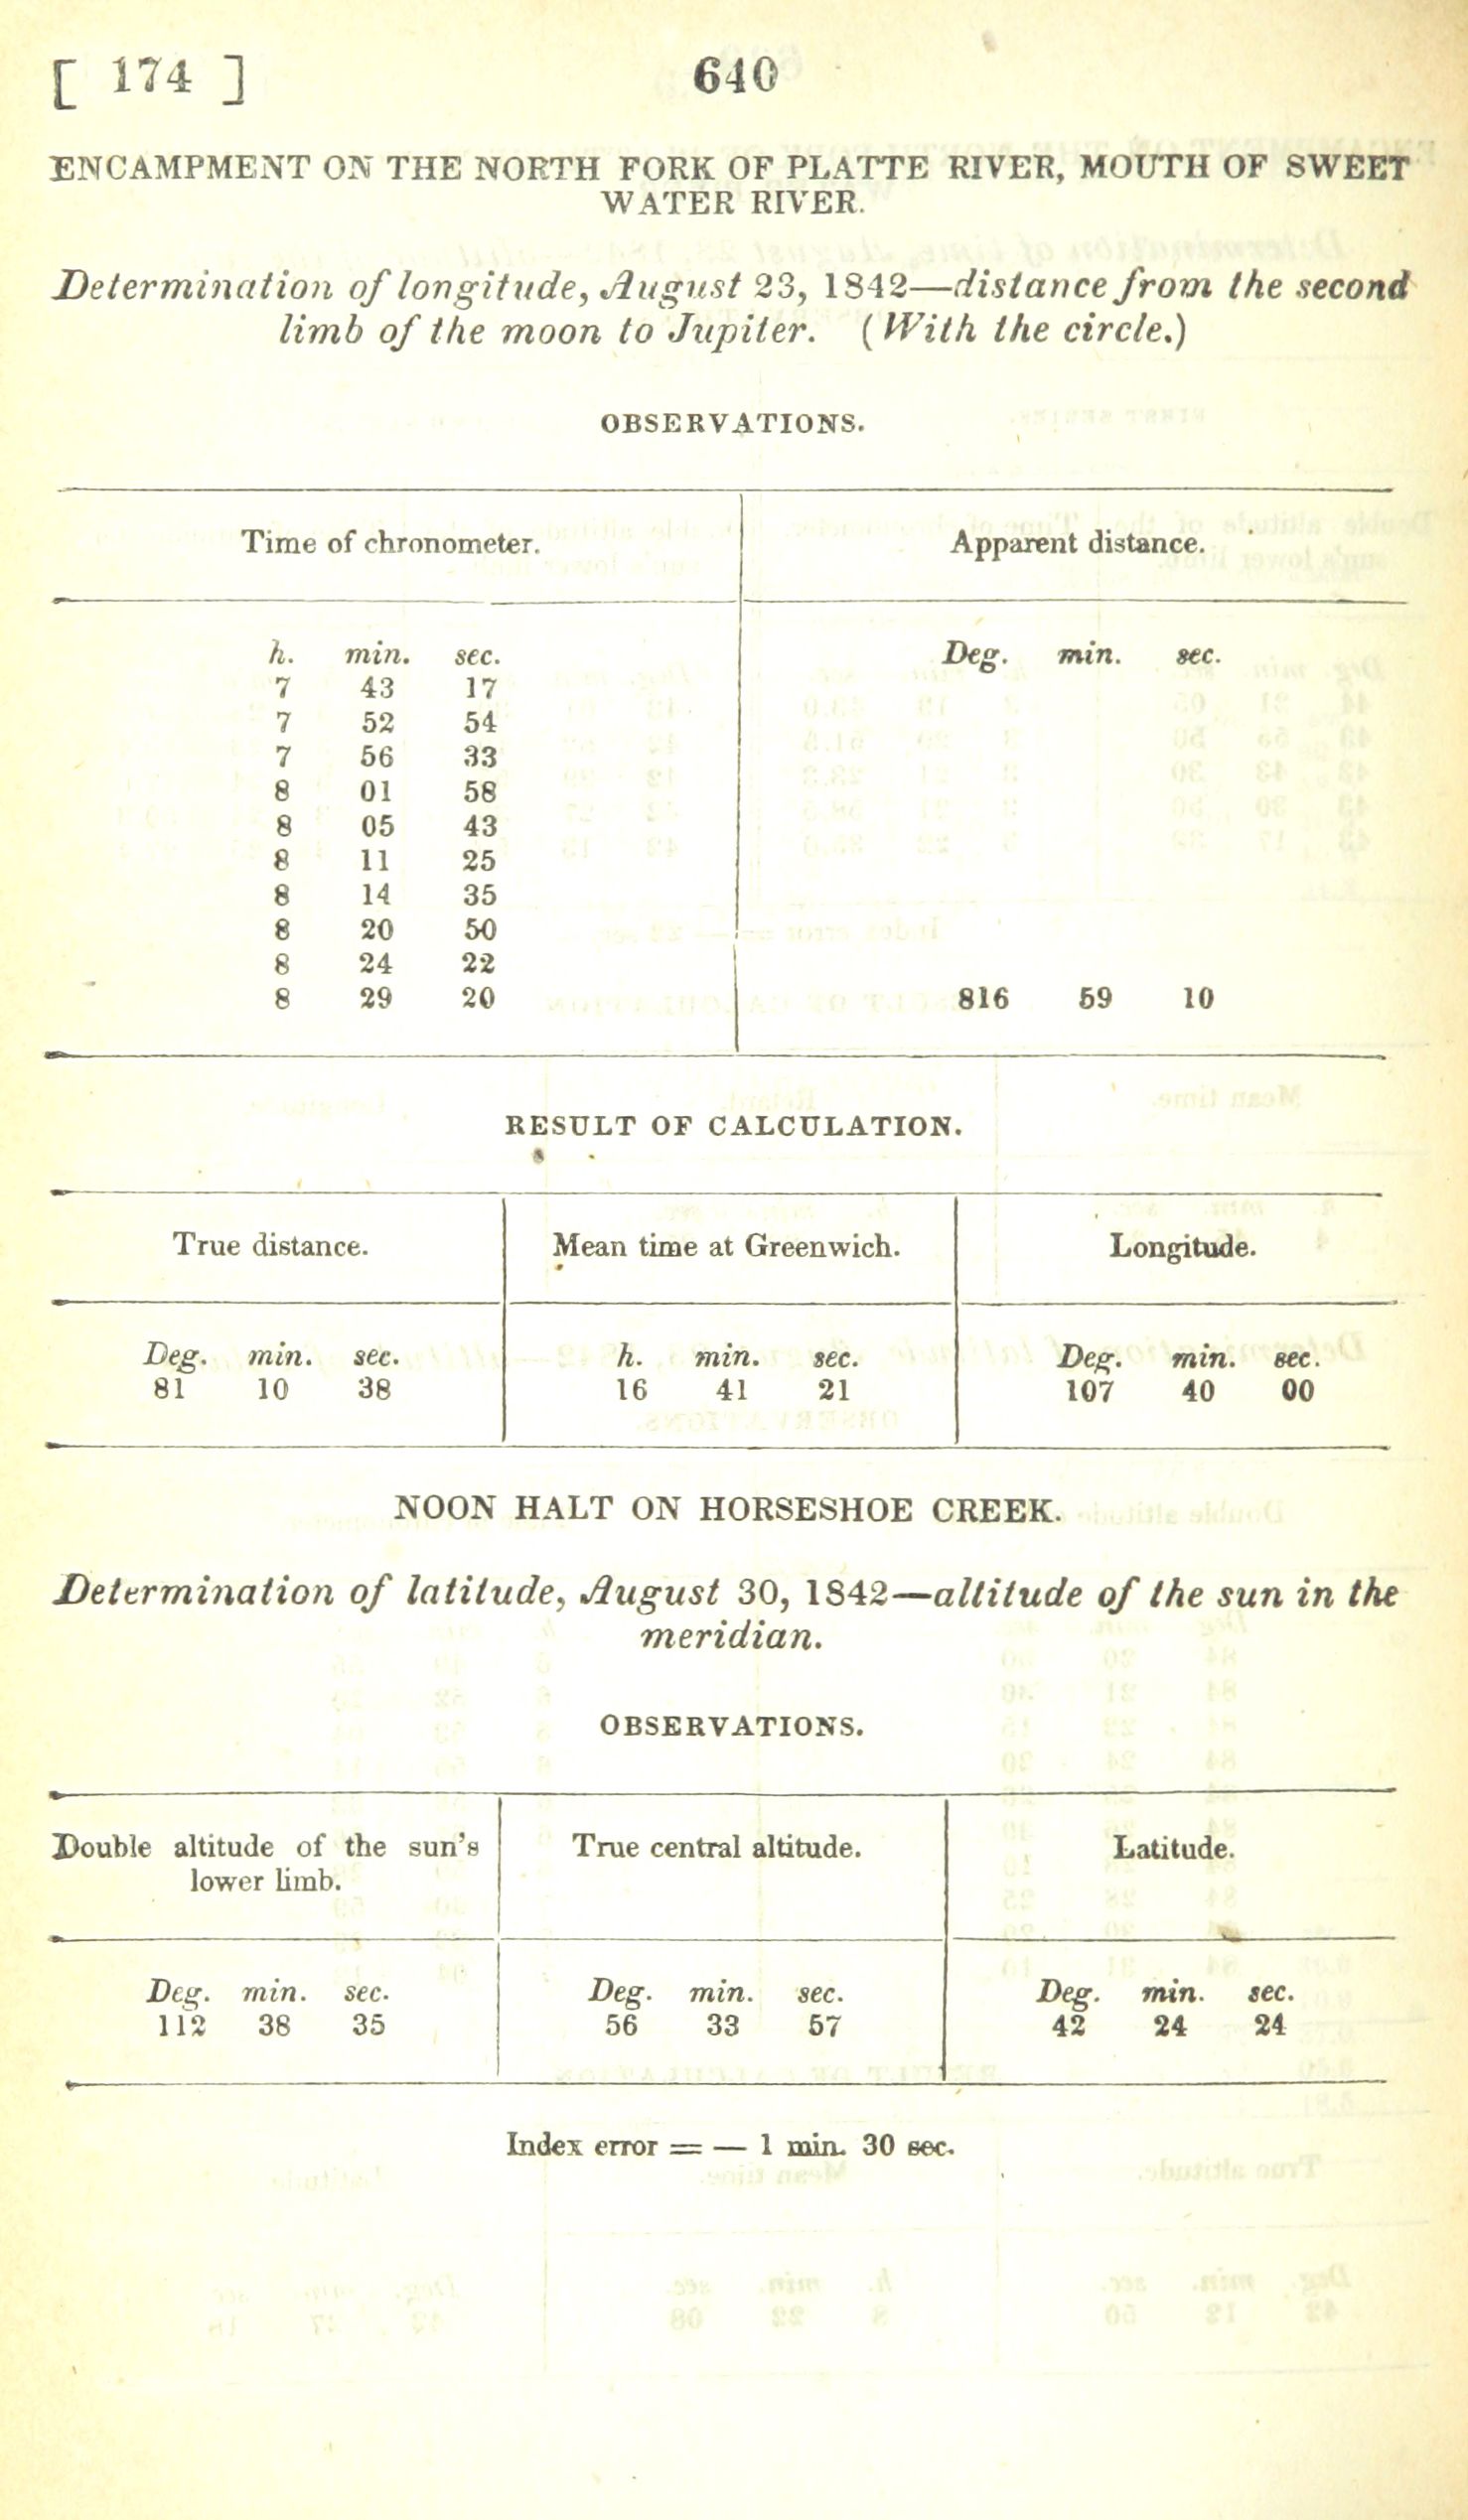 [ 174 ] 640
ENCAMPMENT ON THE NORTH FORK OF PLATTE RIVER, MOUTH OF SWEET
WATER RIVER.
Determination of longitude, August 23, 1842—distance from the second
limb of the moon to Jupiter. (With the circle.)
OBSERVATIONS.
Time of chronometer. Apparent distance.
h. min. sec. Deg. min. sec.
7 43 17
7 52 54
7 56 33
8 01 58
8 05 43
8 11 25
8 14 35
8 20 50
8 24 22
8 29 20 816 59 10
RESULT OF CALCULATION.
True distance. Mean time at Greenwich. Longitude.
Deg. min. sec. h. min. sec. Deg. min. sec.
81 10 38 16 41 21 107 40 00
NOON HALT ON HORSESHOE CREEK.
Determination of latitude, August 30, 1842—altitude of the sun in the
meridian.
OBSERVATIONS.
Double altitude of the sun's True central altitude. Latitude.
lower limb.
Deg. min. sec. Deg. min. sec. Deg. min. sec.
112 38 35 56 33 57 42 24 24
Index error = — 1 min. 30 sec.